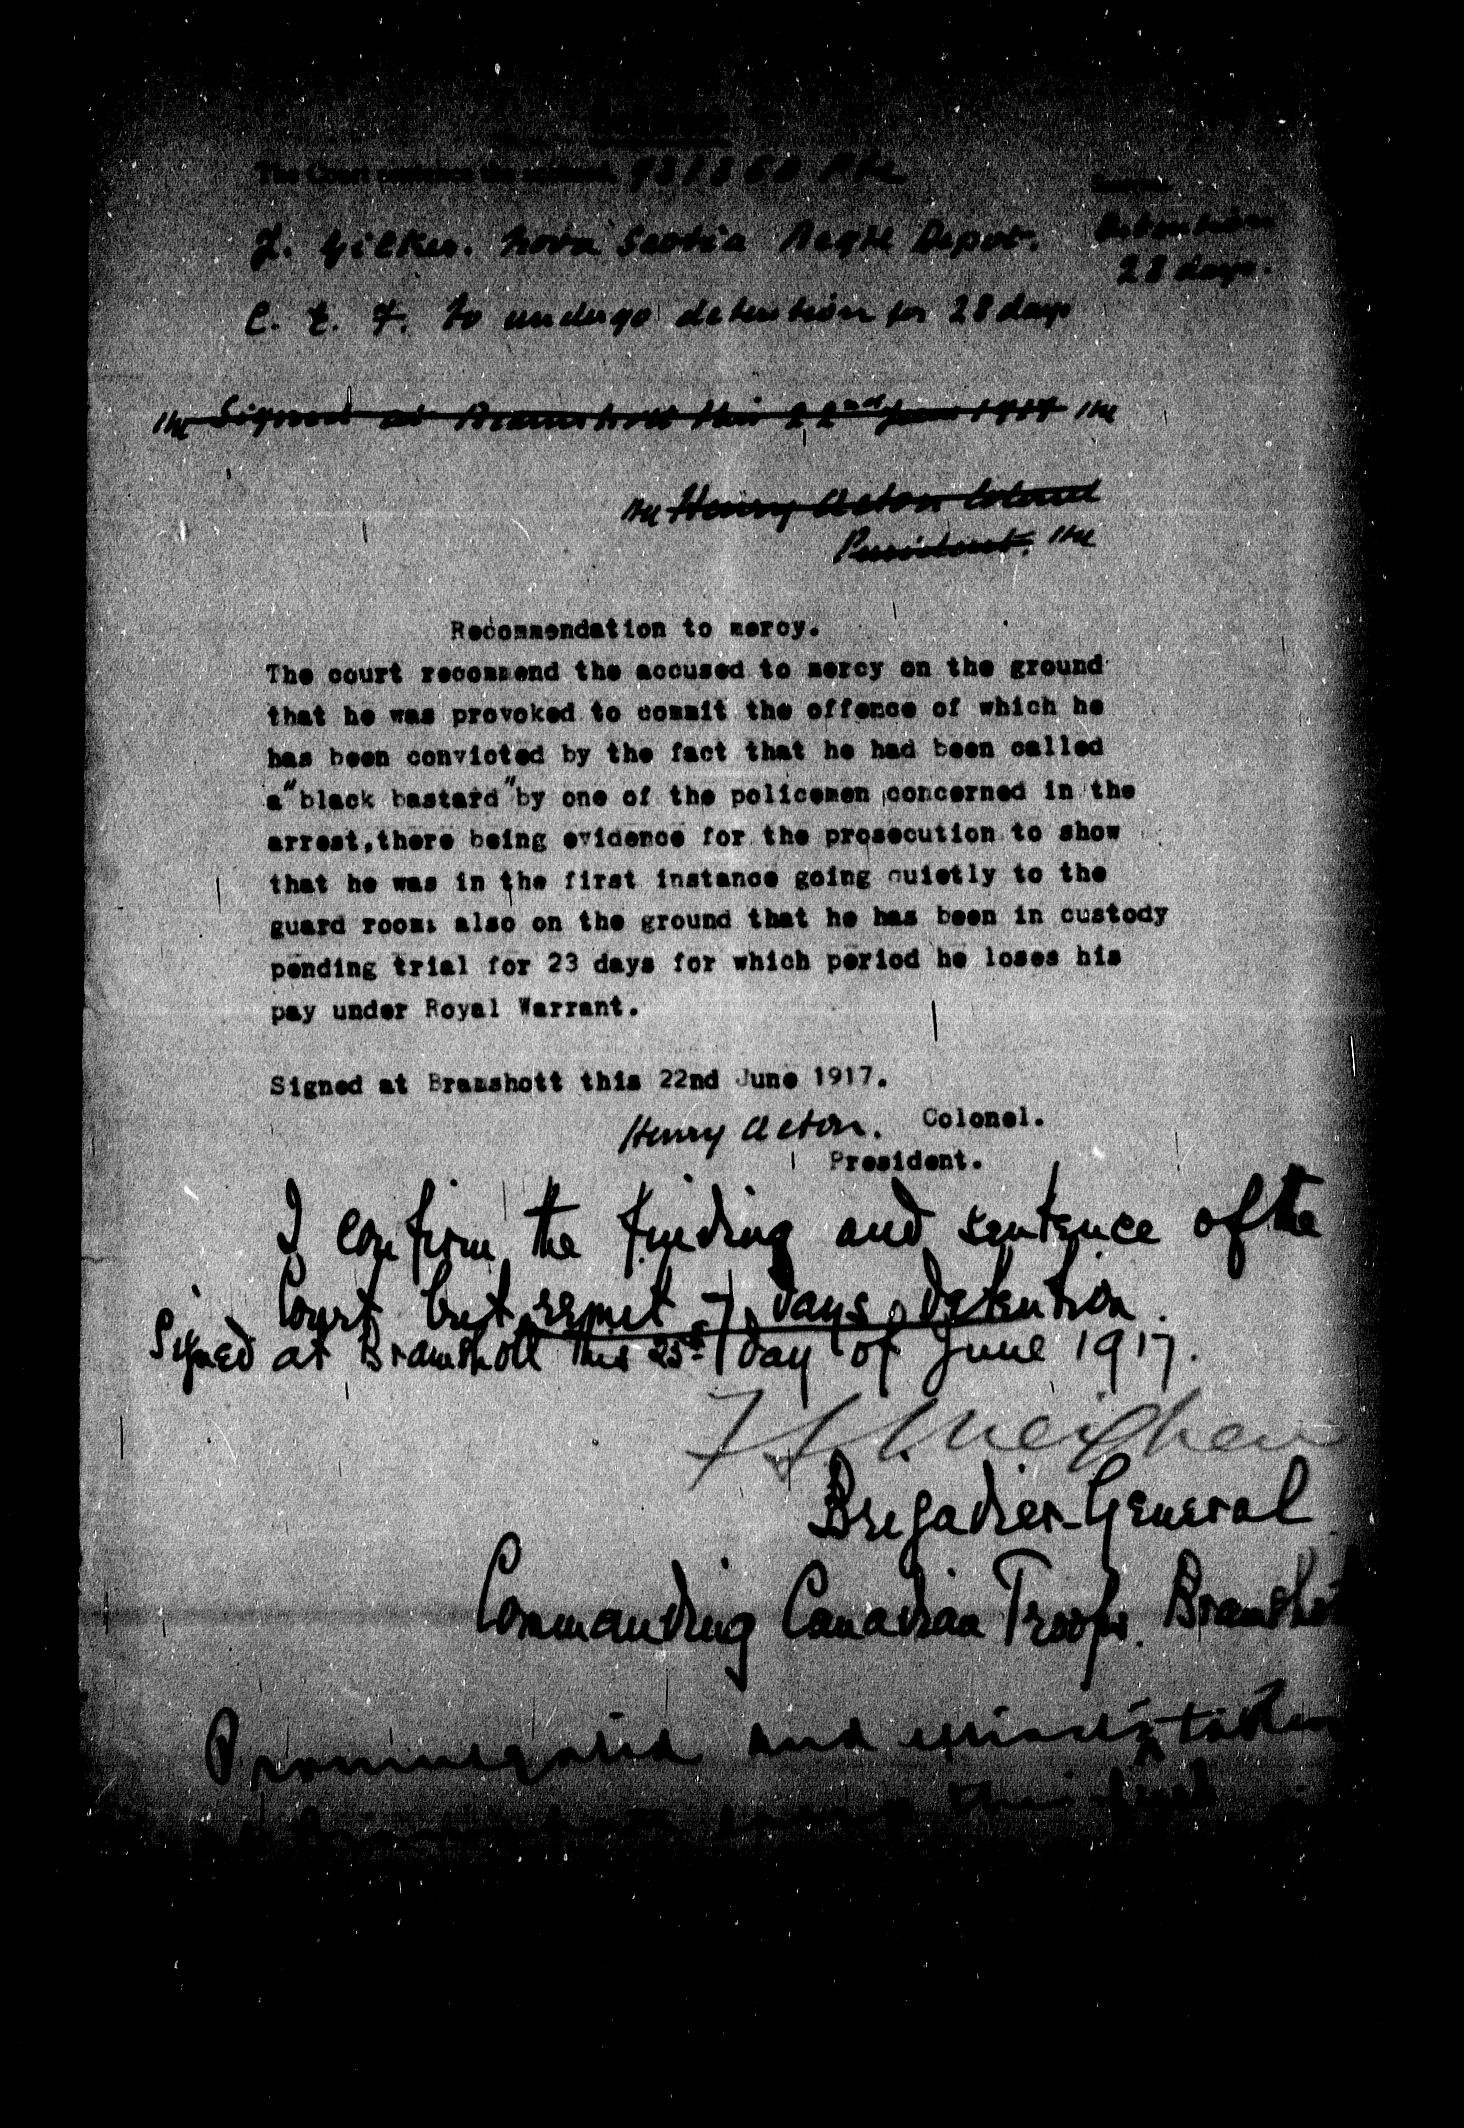 The Court sentence the accused, 931860 Pte
Z. Gilkes. Nova Scotia Regtl Depot.
Detention
28 days.
C. E. F. to undergo detention for 28 days
HA Signed at Bramshott this 22nd June 1917 HA
HA Henry Acton Colonel
President. HA
Recommendation to mercy.
The court recommend the accused to mercy on the ground
that he was provoked to commit the offence of which he
has been convicted by the fact that he had been called
a "black bastard" by one of the policemen concerned in the
arrest, there being evidence for the prosecution to show
that he was in the first instance going quietly to the
guard room; also on the ground that he has been in custody
pending trial for 23 days for which period he loses his
pay under Royal Warrant.
Signed at Bramshott this 22nd June 1917.
Henry Acton. Colonel.
President.
I confirm the finding and sentence of the
Court but remit 7 days detention.
Signed at Bramshott this 25th day of June 1917.
Meighen
Brigadier-General
Commanding Canadian Troops. Bramshott
Promulgated and
this